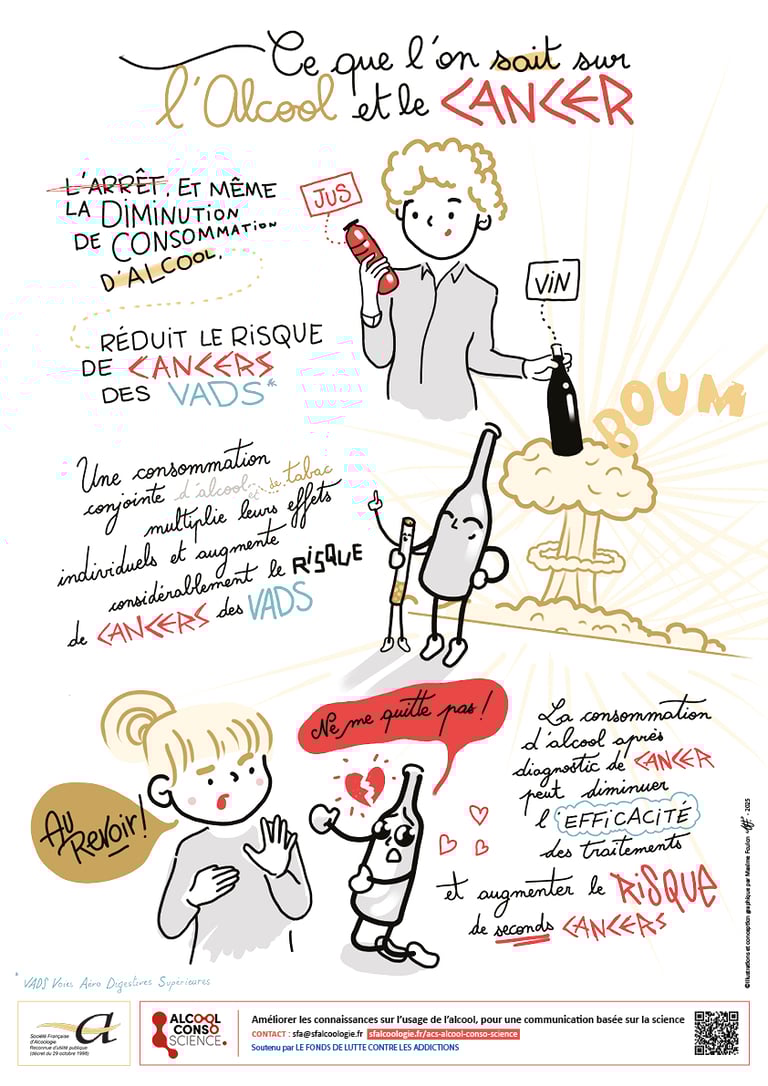 Ce que l'on sait sur
l'Alcool et le CANCER
L'ARRÊT, ET MÊME
LA DIMINUTION
DE CONSOMMATION
D'ALCOOL,
RÉDUIT LE RISQUE
DE CANCERS
DES VADS*
JUS
VIN
BOUM
Une consommation
conjointe d'alcool et de tabac
multiplie leurs effets
individuels et augmente
considérablement le RISQUE
de CANCERS des VADS
Ne me quitte pas !
Au
Revoir !
La consommation
d'alcool après
diagnostic de CANCER
peut diminuer
l'EFFICACITÉ
des traitements
et augmenter le RISQUE
de seconds CANCERS
©Illustrations et conception graphique par Maxime Foulon - 2025
* VADS Voies Aéro Digestives Supérieures
a
Société Française
d'Alcoologie
Reconnue d'utilité publique
(décret du 29 octobre 1998)
ALCOOL
CONSO
SCIENCE.
Améliorer les connaissances sur l'usage de l'alcool, pour une communication basée sur la science
CONTACT : sfa@sfalcoologie.fr sfalcoologie.fr/acs-alcool-conso-science
Soutenu par LE FONDS DE LUTTE CONTRE LES ADDICTIONS